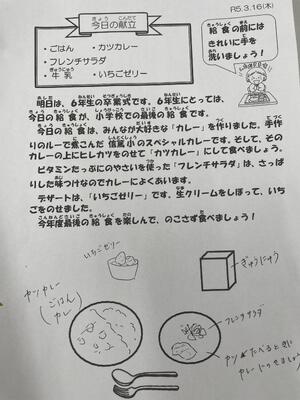 R5.3.16(木)
今日の献立
・ごはん ・カツカレー
・フレンチサラダ
・牛乳 ・いちごゼリー
給食の前には
きれいに手を
洗いましょう!
明日は、6年生の卒業式です。6年生にとっては、
今日の給食が、小学校での最後の給食です。
今日の給食は、みんなが大好きな「カレー」を作りました。手作
りのルーで煮こんだ 信篤小のスペシャルカレーです。そして、その
カレーの上にヒレカツをのせて「カツカレー」にして食べましょう。
ビタミンたっぷりのやさいを使った「フレンチサラダ」は、さっぱ
りした味つけなのでカレーによくあいます。
デザートは、「いちごゼリー」です。生クリームをしぼって、いち
ごをのせました。
今年度最後の給食を楽しんで、のこさず食べましょう!
いちごゼリー
ぎゅうにゅう
カツカレー
(ごはん)
カレー
フレンチサラダ
カツ たべるときに
カレーにのせましょう